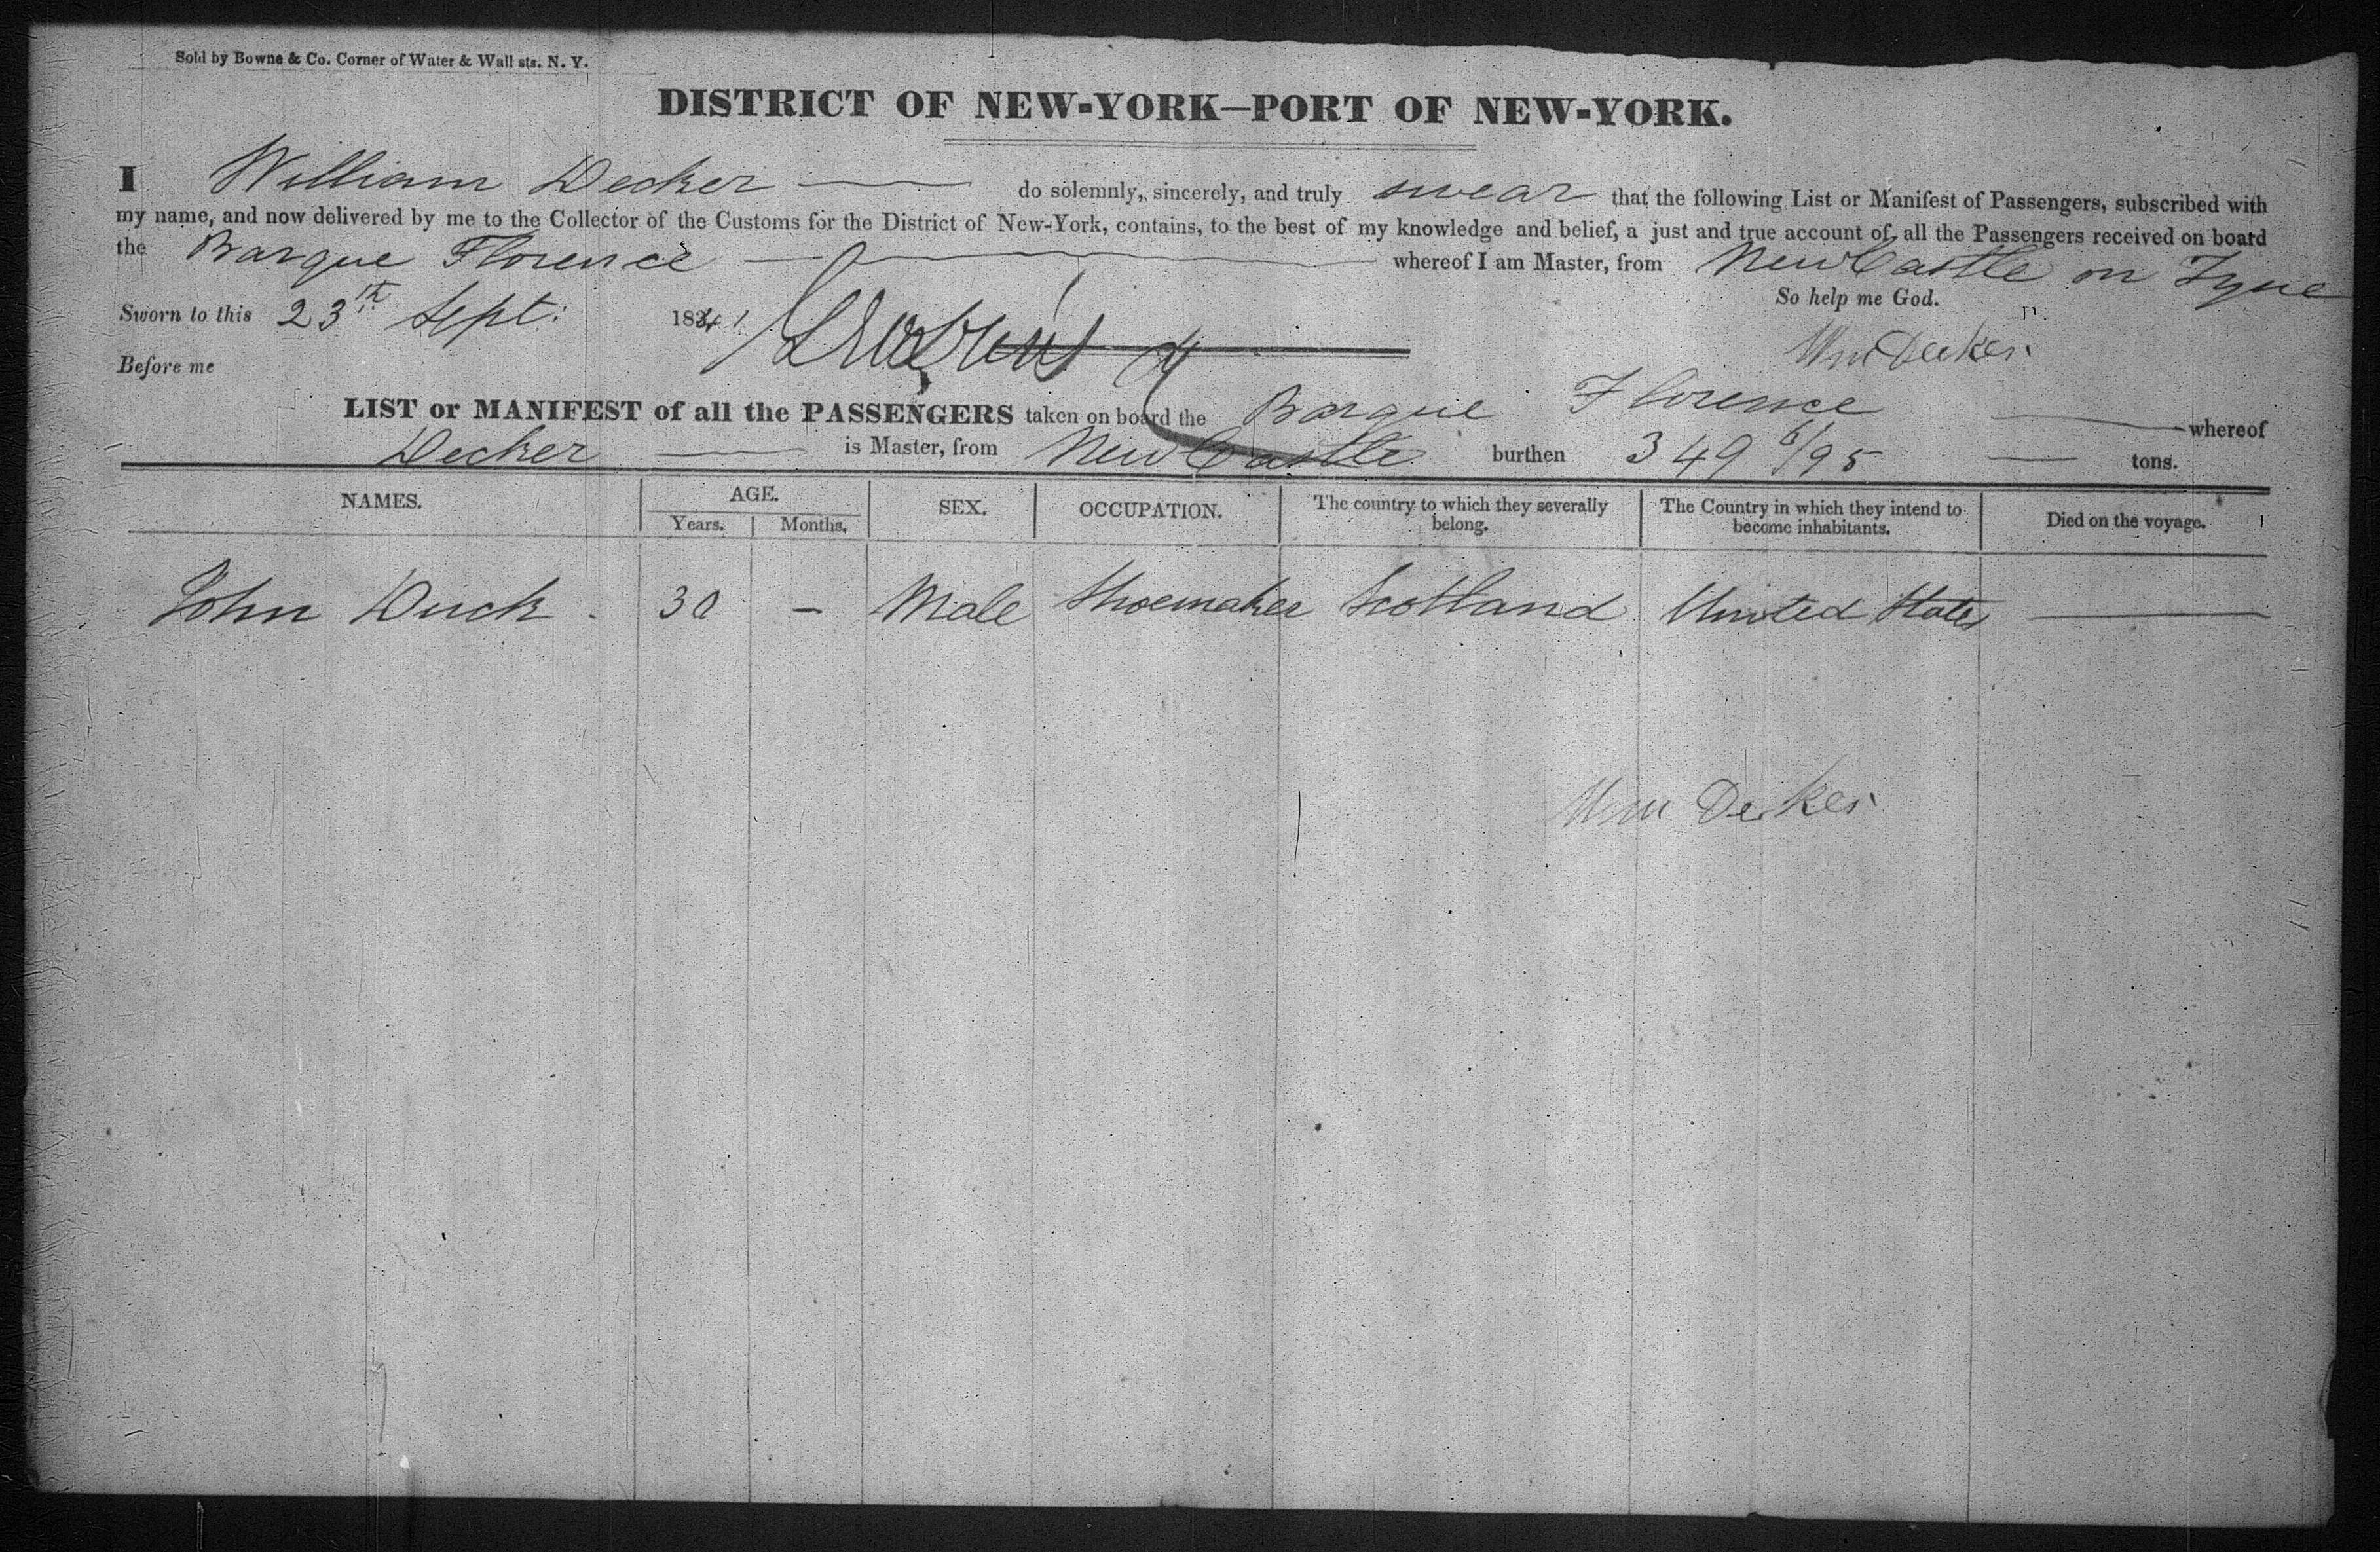 Sold by Bowne & Co. Corner of Water & Wall sts. N. Y.
DISTRICT OF NEW-YORK—PORT OF NEW-YORK.
I William Decker — do solemnly, sincerely, and truly swear that the following List or Manifest of Passengers, subscribed with
my name, and now delivered by me to the Collector of the Customs for the District of New-York, contains, to the best of my knowledge and belief, a just and true account of all the Passengers received on board
the Barque Florence — whereof I am Master, from NewCastle on Tyne
So help me God.
Sworn to this 23th Sept: 1841
Wm Decker
Before me
LIST or MANIFEST of all the PASSENGERS taken on board the Barque Florence — whereof
Decker — is Master, from NewCastle burthen 349 6/95 — tons.
NAMES. AGE. SEX. OCCUPATION. The country to which they severally belong. The Country in which they intend to become inhabitants. Died on the voyage.
Years. Months.
John Duck . 30 – Male Shoemaker Scotland United States —
Wm Decker